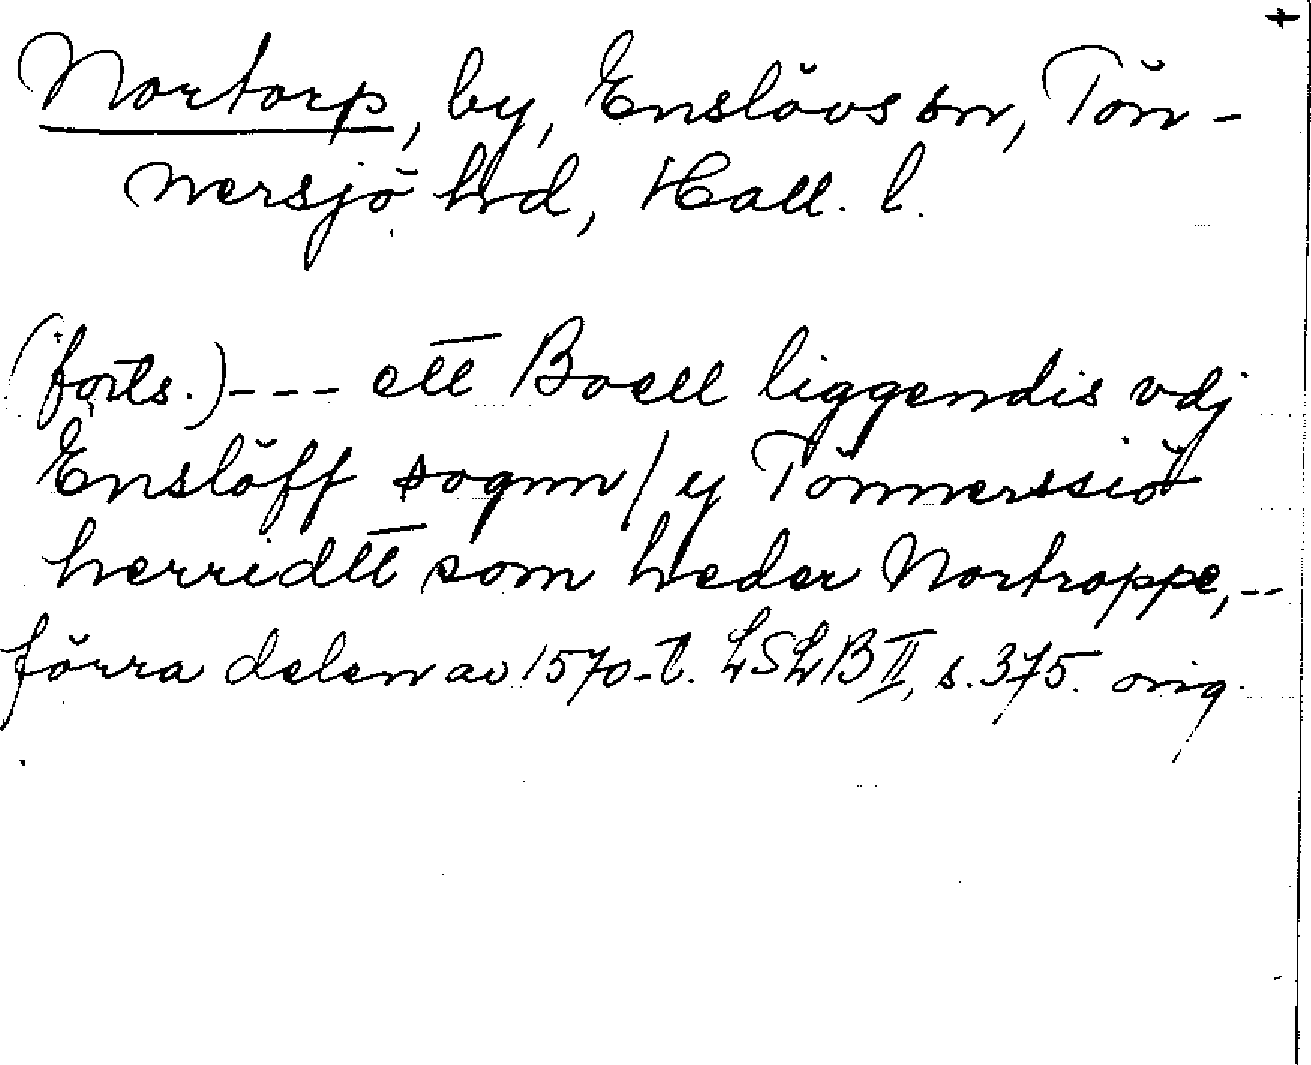 Nortorp, by, Enslövs sn, Tön-
nersjö hd, Hall. l.
(forts.)--- ett Boell liggendis vdj
Enslöff sognn / y Tönnerssiö
herridtt som heder Nortroppe,--
förra delen av 1570-t. LSLB II, s. 375. orig.